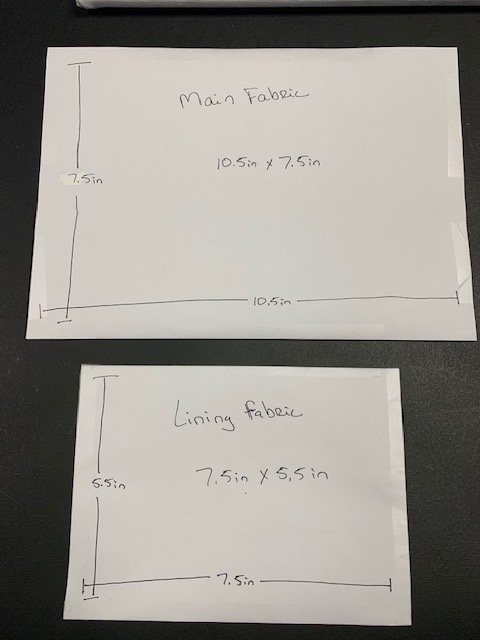 Main Fabric
10.5in x 7.5in
7.5in
10.5in
Lining Fabric
7.5in x 5.5in
5.5in
7.5in